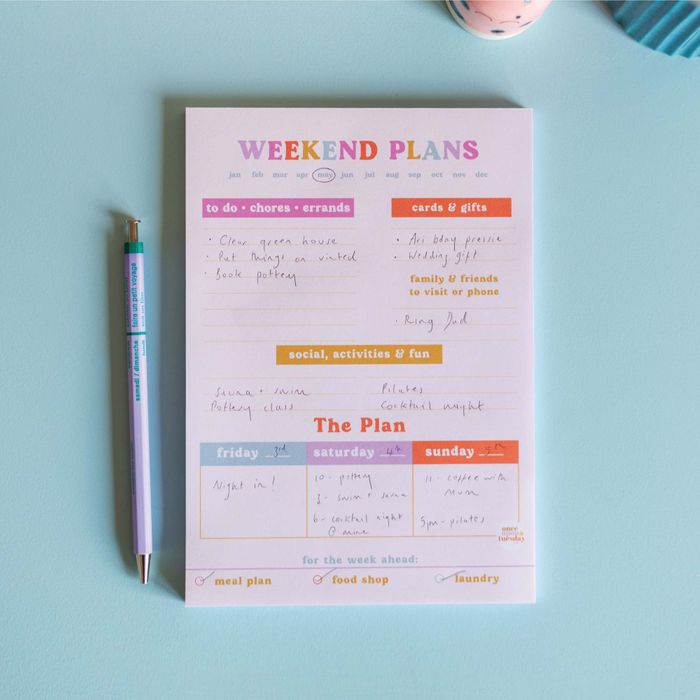 WEEKEND PLANS
jan feb mar apr may jun jul aug sep oct nov dec
to do • chores • errands
• Clear green house
• Put things on vinted
• Book pottery
cards & gifts
• Ari bday pressie
• Wedding gift
family & friends
to visit or phone
• Ring Dad
social, activities & fun
Sauna + swim
Pottery class
Pilates
Cocktail night
The Plan
friday 3rd
Night in!
saturday 4th
10 - pottery
3 - swim + sauna
6 - cocktail night
@ mine
sunday 5th
11 - coffee with
mum
5pm - pilates
once
upon a
tuesday
for the week ahead:
meal plan
food shop
laundry
samedi / dimanche
faire un petit voyage